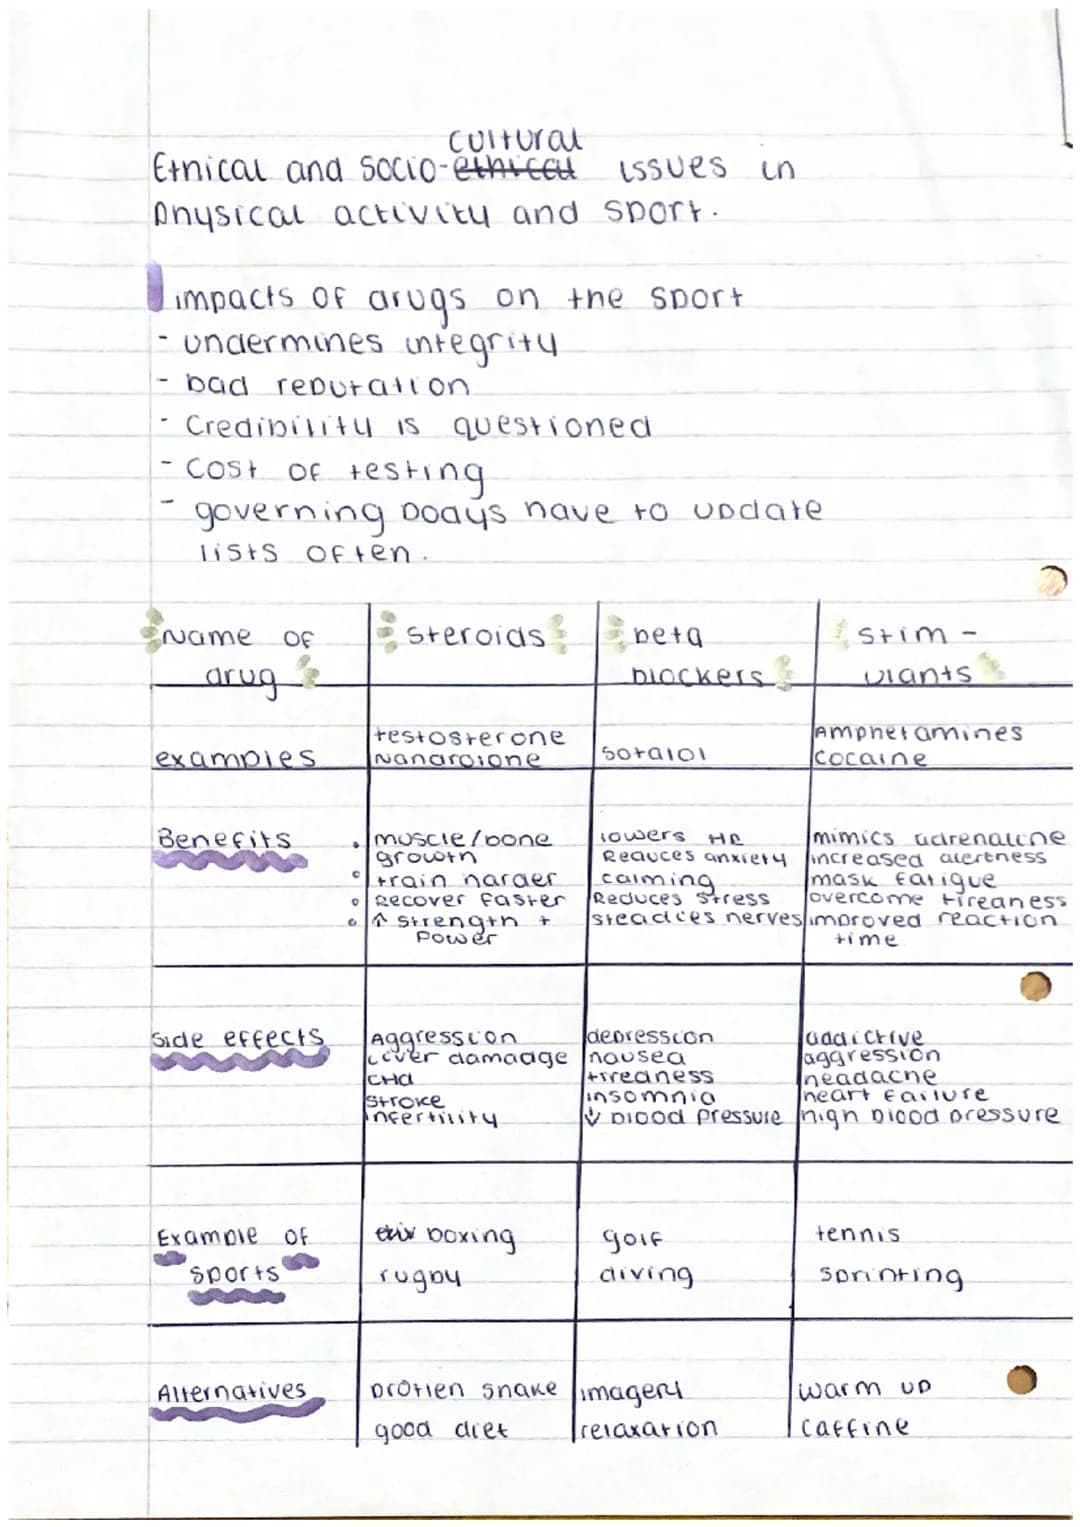 cultural
Ethical and socio-ethical issues in
Physical activity and sport.
impacts of drugs on the sport
- undermines integrity
- bad reputation
- Credibility is questioned
- cost of testing
- governing bodys have to update
lists often.
Name of drug
steroids
beta blockers
stim-ulants
examples
testosterone
Nandrolone
sotalol
Amphetamines
cocaine
Benefits
• muscle/bone
growth
• train harder
• Recover faster
• ↑ strength +
power
lowers HR
Reduces anxiety
calming
Reduces stress
steadies nerves
mimics adrenaline
increased alertness
mask fatigue
overcome tiredness
improved reaction
time
side effects
Aggression
Liver damadge
CHd
stroke
infertility
depression
nausea
tiredness
insomnia
↓ blood pressure
addictive
aggression
headache
heart failure
high blood pressure
Example of
sports
boxing
rugby
golf
diving
tennis
sprinting
Alternatives
protien shake
good diet
imagery
relaxation
warm up
caffine